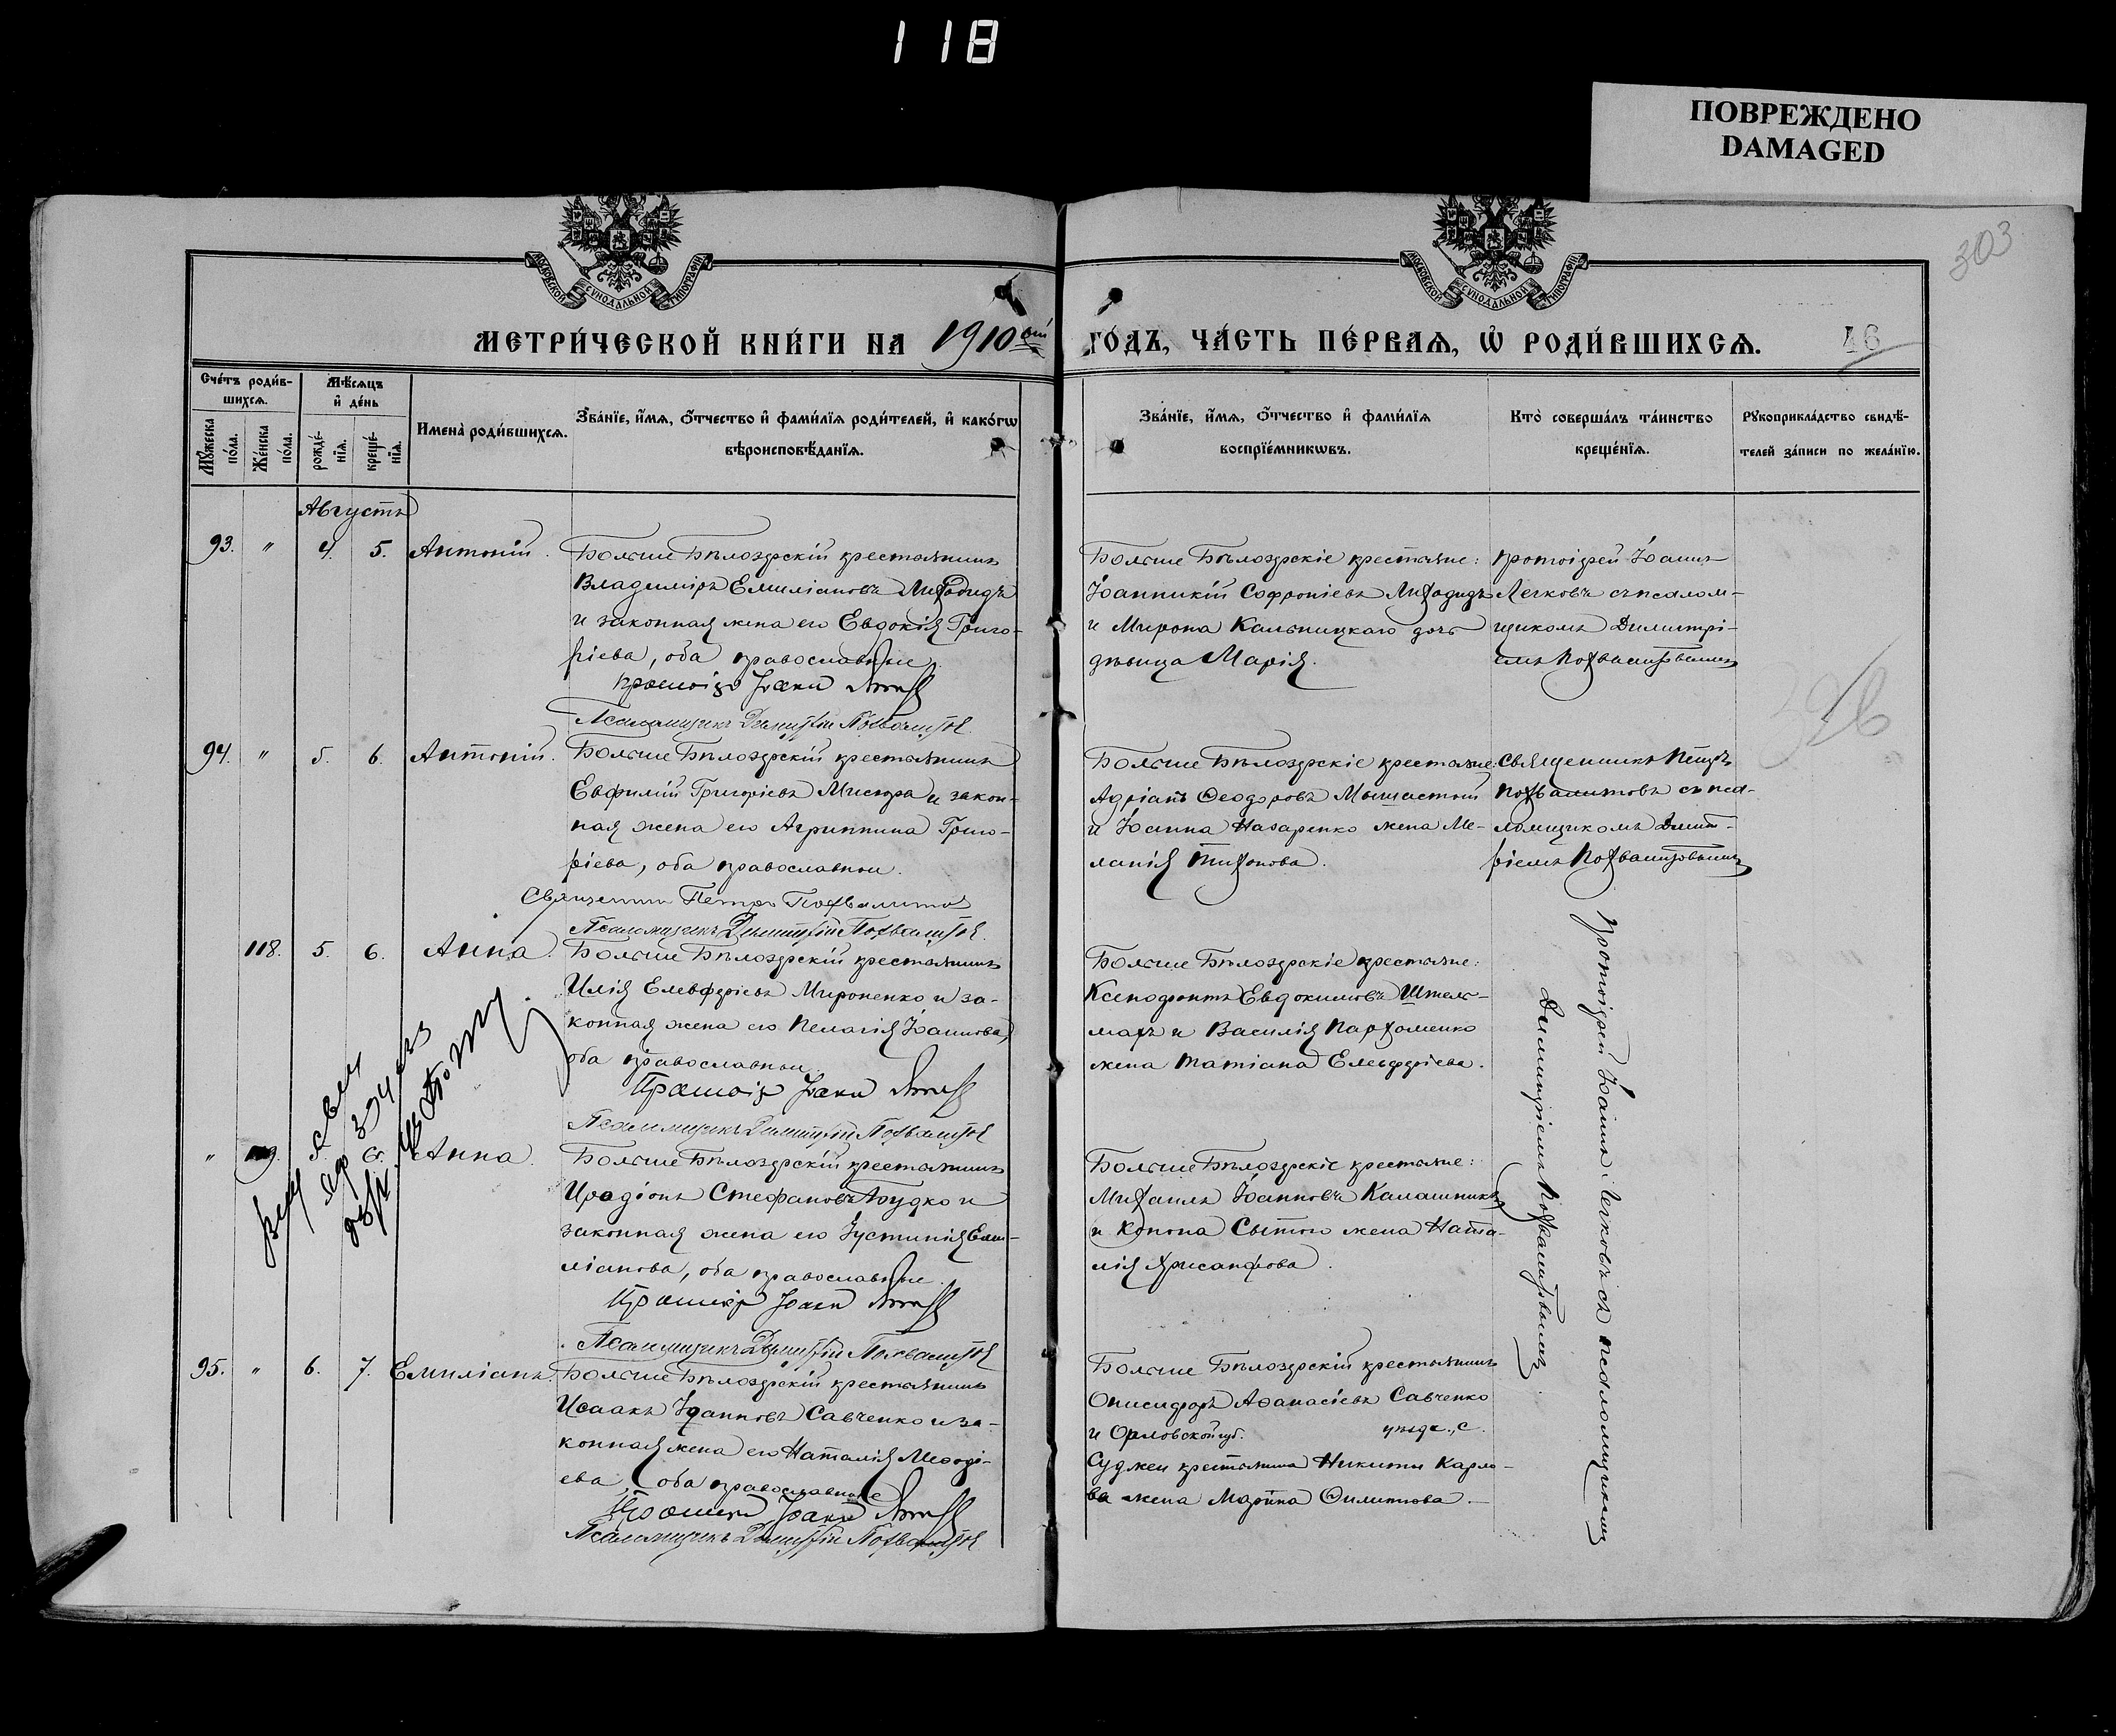 118
ПОВРЕЖДЕНО
DAMAGED
303
МОСКОВСКОЙ СѴНОДАЛЬНОЙ ТИПОГРАФІИ
МОСКОВСКОЙ СѴНОДАЛЬНОЙ ТИПОГРАФІИ
МЕТРИ́ЧЕСКОЙ КНИ́ГИ НА 1910ый ГО́ДЪ, ЧА́СТЬ ПЕ́РВАѦ, Ѡ҆ РОДИ́ВШИХСѦ. 46
Сче́тъ роди́в-
шихсѧ.
Мꙋ́жеска по́ла.
Же́нска по́ла.
Мѣ́сѧцъ
и҆ де́нь
рожде́-
нїѧ.
креще́-
нїѧ.
Имена̀ роди́вшихсѧ.
Зва́нїе, и҆́мѧ, ѻ҆́тчество и҆ фами́лїѧ роди́телей, и҆ како́гѡ
вѣроисповѣ́данїѧ.
Зва́нїе, и҆́мѧ, ѻ҆́тчество и҆ фами́лїѧ
воспрїе́мникѡвъ.
Кто̀ соверша́лъ та́инство
креще́нїѧ.
Рꙋкоприкла́дство свидѣ́-
телей за́писи по жела́нїю.
Августъ
93. " 4. 5. Антоній.
Больше Бѣлозерскій крестьянинъ
Владиміръ Емиліановъ Лиходидъ
и законная жена его Евдокія Григо-
ріева, оба православные.
Протоіер Іоанн
Псаломщикъ Димитрій Похвалитов
Больше Бѣлозерскіе крестьяне:
Іоанникій Софроніевъ Лиходидъ
и Мирона Кальницкаго дочь
дѣвица Марія.
протоіерей Іоаннъ
Легковъ съ псалом-
щикомъ Димитрі-
емъ Похвалитовымъ
94. " 5. 6. Антоній.
Больше Бѣлозерскій крестьянинъ
Евфимій Григоріевъ Мисюра и закон-
ная жена его Агриппина Григо-
ріева, оба православные.
Священник Петръ Похвалитов
Псаломщикъ Димитрій Похвалитов
Больше Бѣлозерскіе крестьяне:
Адріанъ Ѳеодоровъ Мышастый
и Іоанна Назаренко жена Ме-
ланія Тихонова.
священникъ Петръ
Похвалитовъ съ пса-
ломщикомъ Димит-
ріемъ Похвалитовымъ
118. 5. 6. Анна.
Больше Бѣлозерскій крестьянинъ
Илія Елевферіевъ Мироненко и за-
конная жена его Пелагія Іоаннова,
оба православные.
Протоіер Іоанн
Псаломщикъ Димитрій Похвалитов
Больше Бѣлозерскіе крестьяне:
Ксенофонтъ Евдокимовъ Штель-
махъ и Василія Пархоменко
жена Татіана Елевферіева.
протоіерей Іоаннъ Легковъ съ псаломщикомъ
Димитріемъ Похвалитовымъ.
" 119. 5. 6. Анна.
Больше Бѣлозерскій крестьянинъ
Иродіонъ Стефановъ Будко и
законная жена его Іустинія Еми-
ліанова, оба православные.
Протоіер Іоанн
Псаломщикъ Димитрій Похвалитов
Больше Бѣлозерскіе крестьяне:
Михаилъ Іоанновъ Калашникъ
и Конона Сытого жена Ната-
лія Хрисанфова.
95. " 6. 7. Емиліанъ.
Больше Бѣлозерскій крестьянинъ
Исаакъ Іоанновъ Савченко и за-
конная жена его Наталія Меѳоді-
ева, оба православные
Протоіер Іоанн
Псаломщикъ Димитрій Похвалитов
Больше Бѣлозерскій крестьянинъ
Онисифоръ Аѳанасіевъ Савченко
и Орловской губ. уѣзда, с.
Суджи крестьянина Никиты Карло-
ва жена Марина Филиппова.